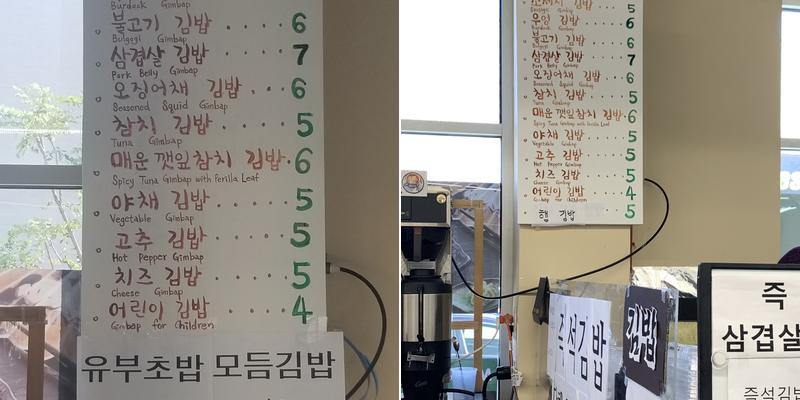 Burdock Gimbap
불고기 김밥 ···· 6
Bulgogi Gimbap
삼겹살 김밥 ···· 7
Pork Belly Gimbap
오징어채 김밥 ··· 6
Seasoned Squid Gimbap
참치 김밥 ····· 5
Tuna Gimbap
매운 깻잎참치 김밥· 6
Spicy Tuna Gimbap with Perilla Leaf
야채 김밥 ····· 5
Vegetable Gimbap
고추 김밥 ····· 5
Hot Pepper Gimbap
치즈 김밥 ····· 5
Cheese Gimbap
어린이 김밥 ···· 4
Gimbap for Children
유부초밥 모듬김밥
김밥 5
우엉 김밥 6
Burdock Gimbap
불고기 김밥 6
Bulgogi Gimbap
삼겹살 김밥 7
Pork Belly Gimbap
오징어채 김밥 6
Seasoned Squid Gimbap
참치 김밥 5
Tuna Gimbap
매운 깻잎참치 김밥 6
Spicy Tuna Gimbap with Perilla Leaf
야채 김밥 5
Vegetable Gimbap
고추 김밥 5
Hot Pepper Gimbap
치즈 김밥 5
Cheese Gimbap
어린이 김밥 4
Gimbap for Children
햄 김밥 5
즉석김밥
김밥
즉
삼겹살
즉석김밥